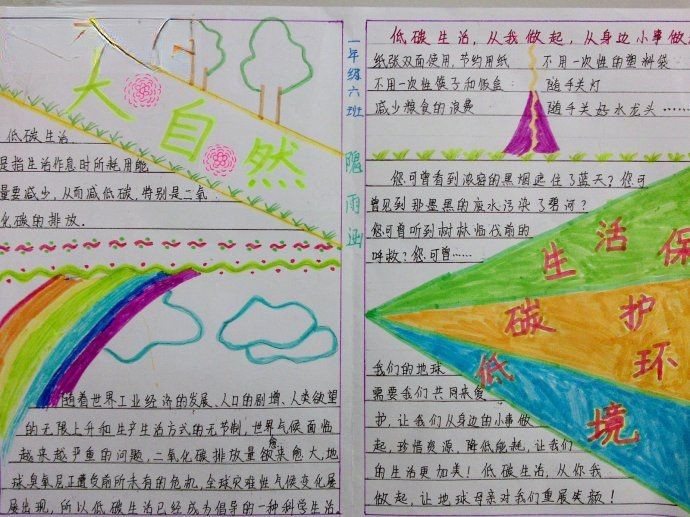 大自然
低碳生活
是指生活作息时所耗用能
量要减少，从而减低碳，特别是二氧
化碳的排放．
随着世界工业经济的发展、人口的剧增、人类欲望
的无限上升和生产生活方式的无节制，世界气候面临
越来越严重的问题，二氧化碳排放量愈来愈大，地
球臭氧层正遭负前所未有的危机，全球灾难性气候变化屡
屡出现，所以低碳生活已经成为倡导的一种科学生活
一年级六班
雨涵
低碳生活，从我做起，从身边小事做
纸张双面使用，节约用纸 不用一次性的塑料袋
不用一次性筷子和饭盒 随手关灯
减少粮食的浪费 随手关好水龙头……
您可曾看到浓密的黑烟遮住了蓝天？您可
曾见到那墨黑的废水污染了碧河？
您可曾听到树林临伐前的
呼救？您可曾……
生活保
碳护
低环
境
我们的地球
需要我们共同来爱
护，让我们从身边的小事做
起，珍惜资源，降低能耗，让我们
的生活更加美！低碳生活，从你我
做起，让地球母亲对我们重展笑颜！